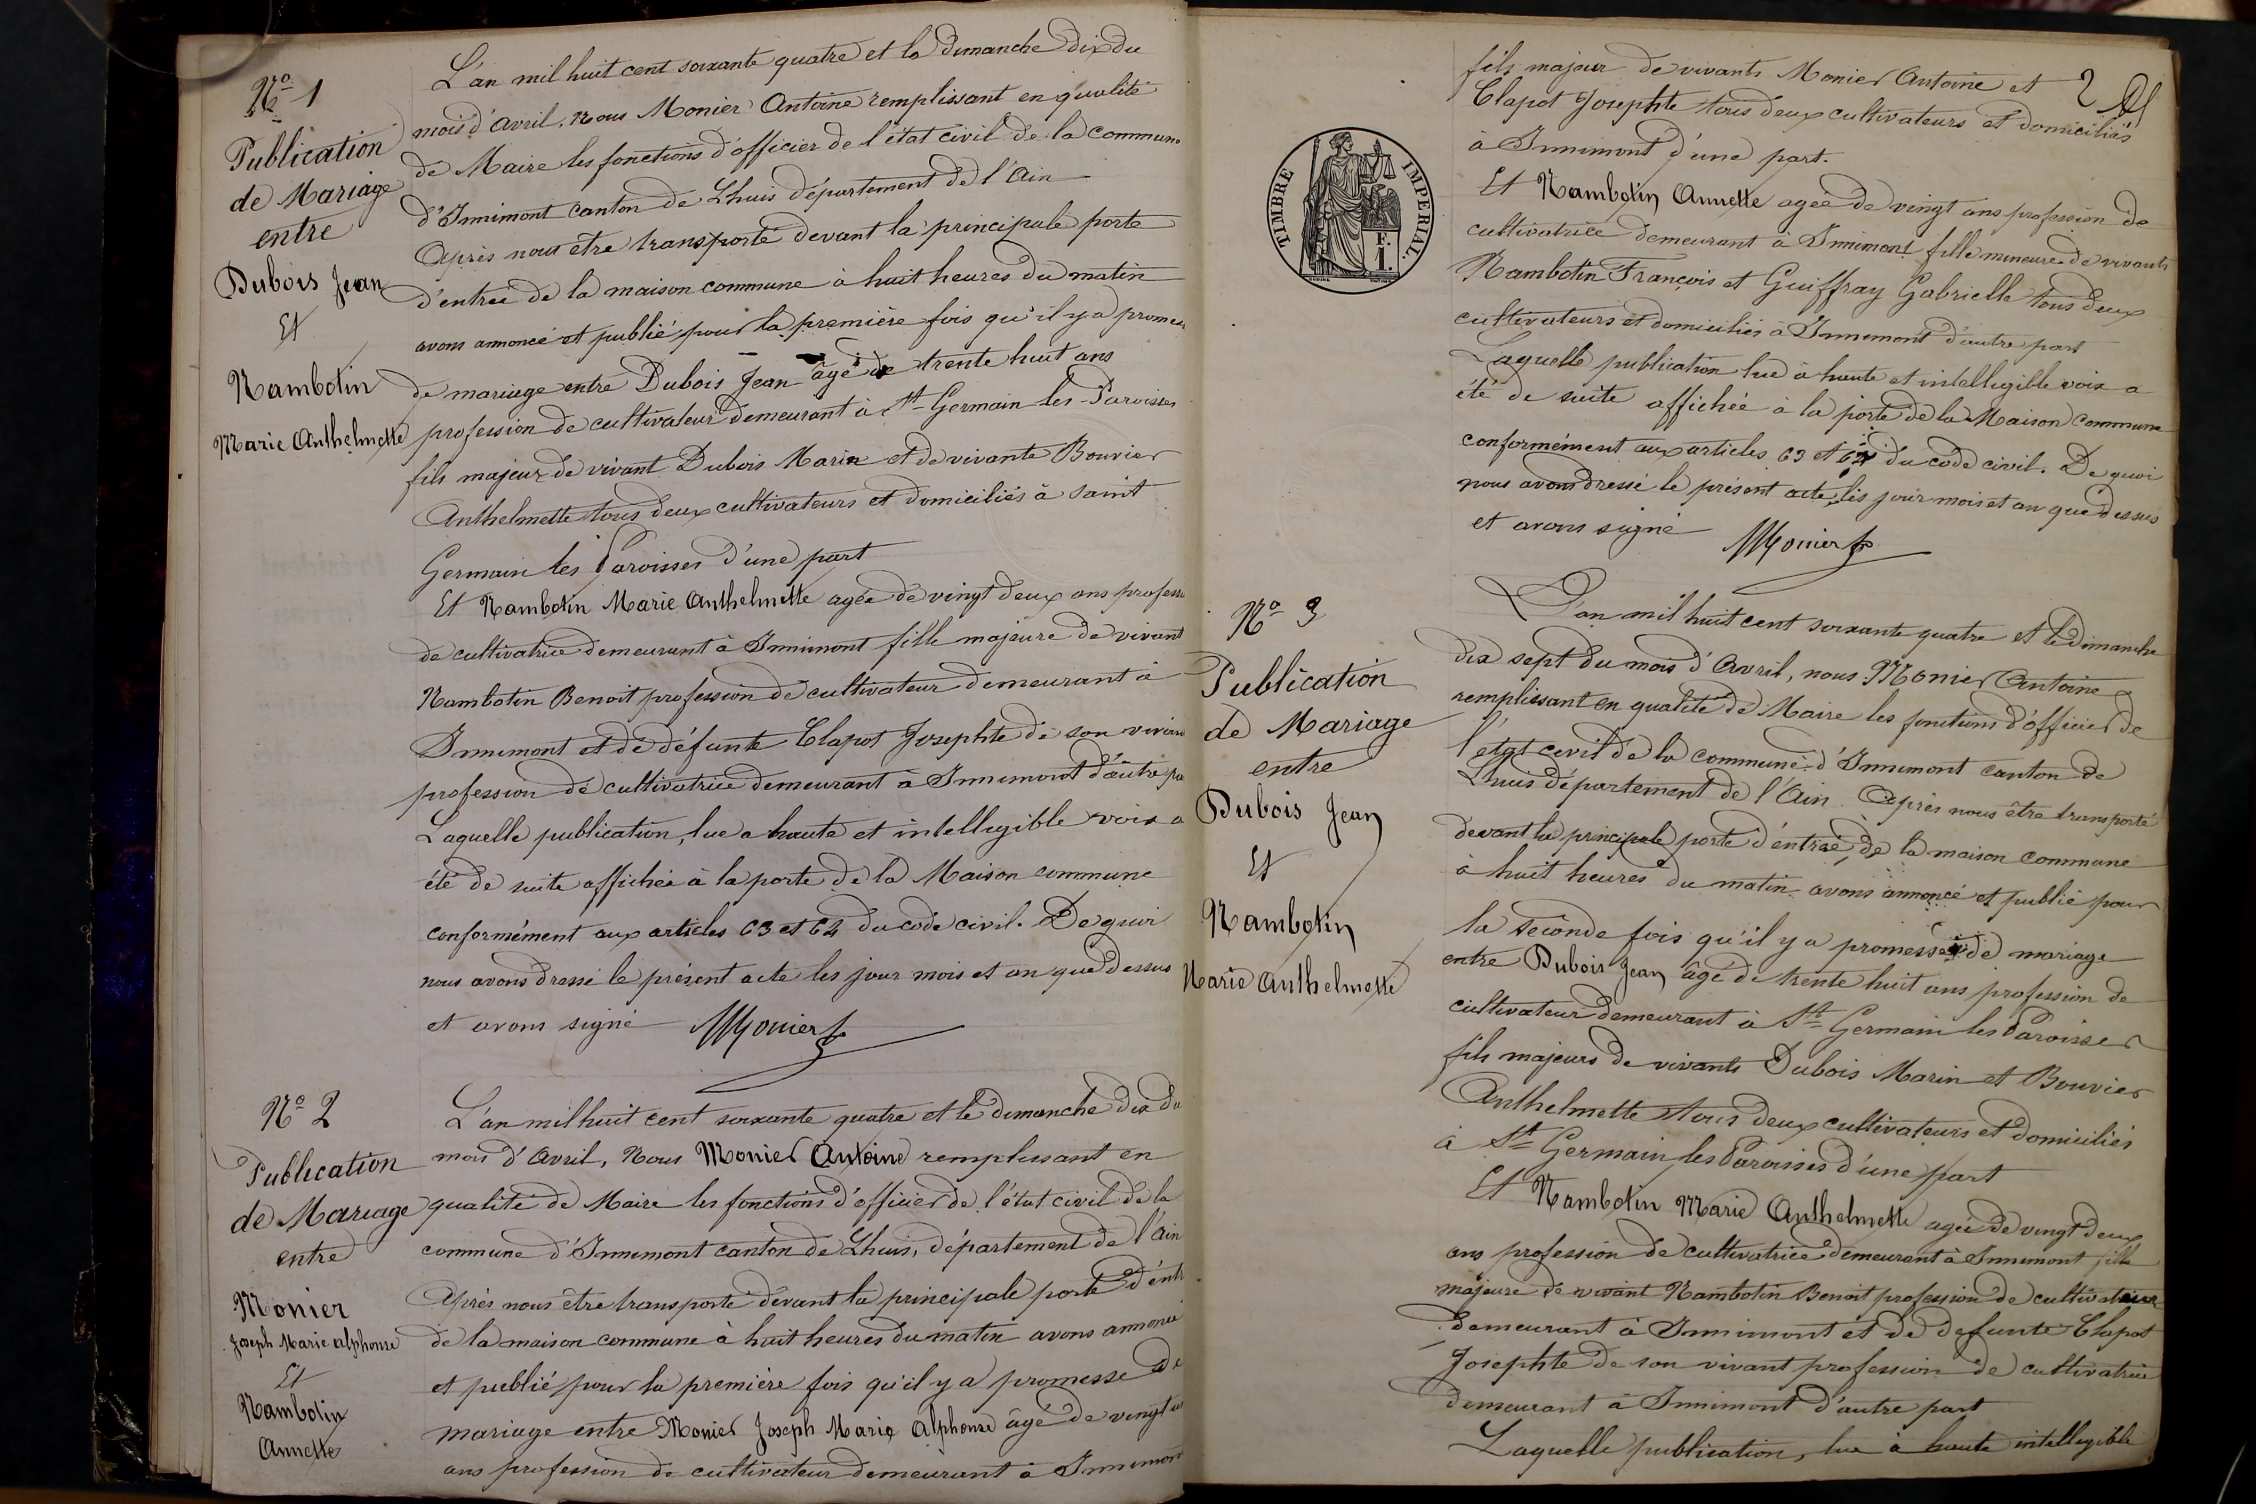 Nº 1
Publication
de Mariage
entre
Dubois Jean
Et
Nambotin
Marie Anthelmette
L'an mil huit cent soixante quatre et le dimanche dix du
mois d'Avril, nous Monier Antoine remplissant en qualité
de Maire les fonctions d'officier de l'état civil de la commune
d'Innimont canton de Lhuis département de l'Ain
Après nous être transporté devant la principale porte
d'entrée de la maison commune à huit heures du matin
avons annoncé et publié pour la première fois qu'il y a promesse
de mariage entre Dubois Jean âgé de trente huit ans
profession de cultivateur demeurant à St Germain les Paroisses
fils majeur de vivant Dubois Marin et de vivante Bouvier
Anthelmette tous deux cultivateurs et domiciliés à Saint
Germain les Paroisses d'une part
Et Nambotin Marie Anthelmette agée de vingt deux ans profess
de cultivatrice demeurant à Innimont fille majeure de vivant
Nambotin Benoit profession de cultivateur demeurant à
Innimont et de défunte Clapot Josephte de son vivant
profession de cultivatrice demeurant à Innimont d'autre pa
Laquelle publication, lue a haute et intelligible voix a
été de suite affichée à la porte de la Maison commune
conformément aux articles 63 et 64 du code civil. De quoi
nous avons dressé le présent acte les jour mois et an que dessus
et avons signé Monier
Nº 2
Publication
de Mariage
entre
Monier
Joseph Marie Alphonse
Et
Nambotin
Annette
L'an mil huit cent soixante quatre et le dimanche dix du
mois d'Avril, Nous Monier Antoine remplissant en
qualité de Maire les fonctions d'officier de l'état civil de la
commune d'Innimont canton de Lhuis, département de l'Ain
Après nous être transporté devant la principale porte d'entr
de la maison commune à huit heures du matin avons annoncé
et publié pour la première fois qu'il y a promesse de
mariage entre Monier Joseph Marie Alphonse âgé de vingt
ans profession de cultivateur demeurant à Innimont
2
fils majeur de vivants Monier Antoine et
Clapot Josephte tous deux cultivateurs et domiciliés
à Innimont d'une part.
Et Nambotin Annette agée de vingt ans profession de
cultivatrice demeurant à Innimont fille mineure de vivants
Nambotin François et Guiffray Gabrielle tous deux
cultivateurs et domiciliés à Innimont d'autre part
Laquelle publication lue à haute et intelligible voix a
été de suite affichée à la porte de la Maison commune
conformément aux articles 63 et 64 du code civil. De quoi
nous avons dressé le présent acte les jour mois et an que dessus
et avons signé Monier
TIMBRE IMPERIAL.
E.
I.
Nº 3
Publication
de Mariage
entre
Dubois Jean
Et
Nambotin
Marie Anthelmette
L'an mil huit cent soixante quatre et le dimanche
dix sept du mois d'Avril, nous Monier Antoine
remplissant en qualité de Maire les fonctions d'officier de
l'état civil de la commune d'Innimont canton de
Lhuis département de l'Ain. Après nous être transporté
devant la principale porte d'entrée de la maison commune
à huit heures du matin avons annoncé et publié pour
la seconde fois qu'il y a promesse de mariage
entre Dubois Jean âgé de trente huit ans profession de
cultivateur demeurant à St Germain les Paroisses
fils majeurs de vivants Dubois Marin et Bouvier
Anthelmette tous deux cultivateurs et domiciliés
à St Germain les Paroisses d'une part
Et Nambotin Marie Anthelmette agée de vingt deux
ans profession de cultivatrice demeurant à Innimont fille
majeure de vivant Nambotin Benoit profession de cultivateur
demeurant à Innimont et de defunte Clapot
Josephte de son vivant profession de cultivatrice
demeurant à Innimont d'autre part
Laquelle publication, lue à haute intelligible